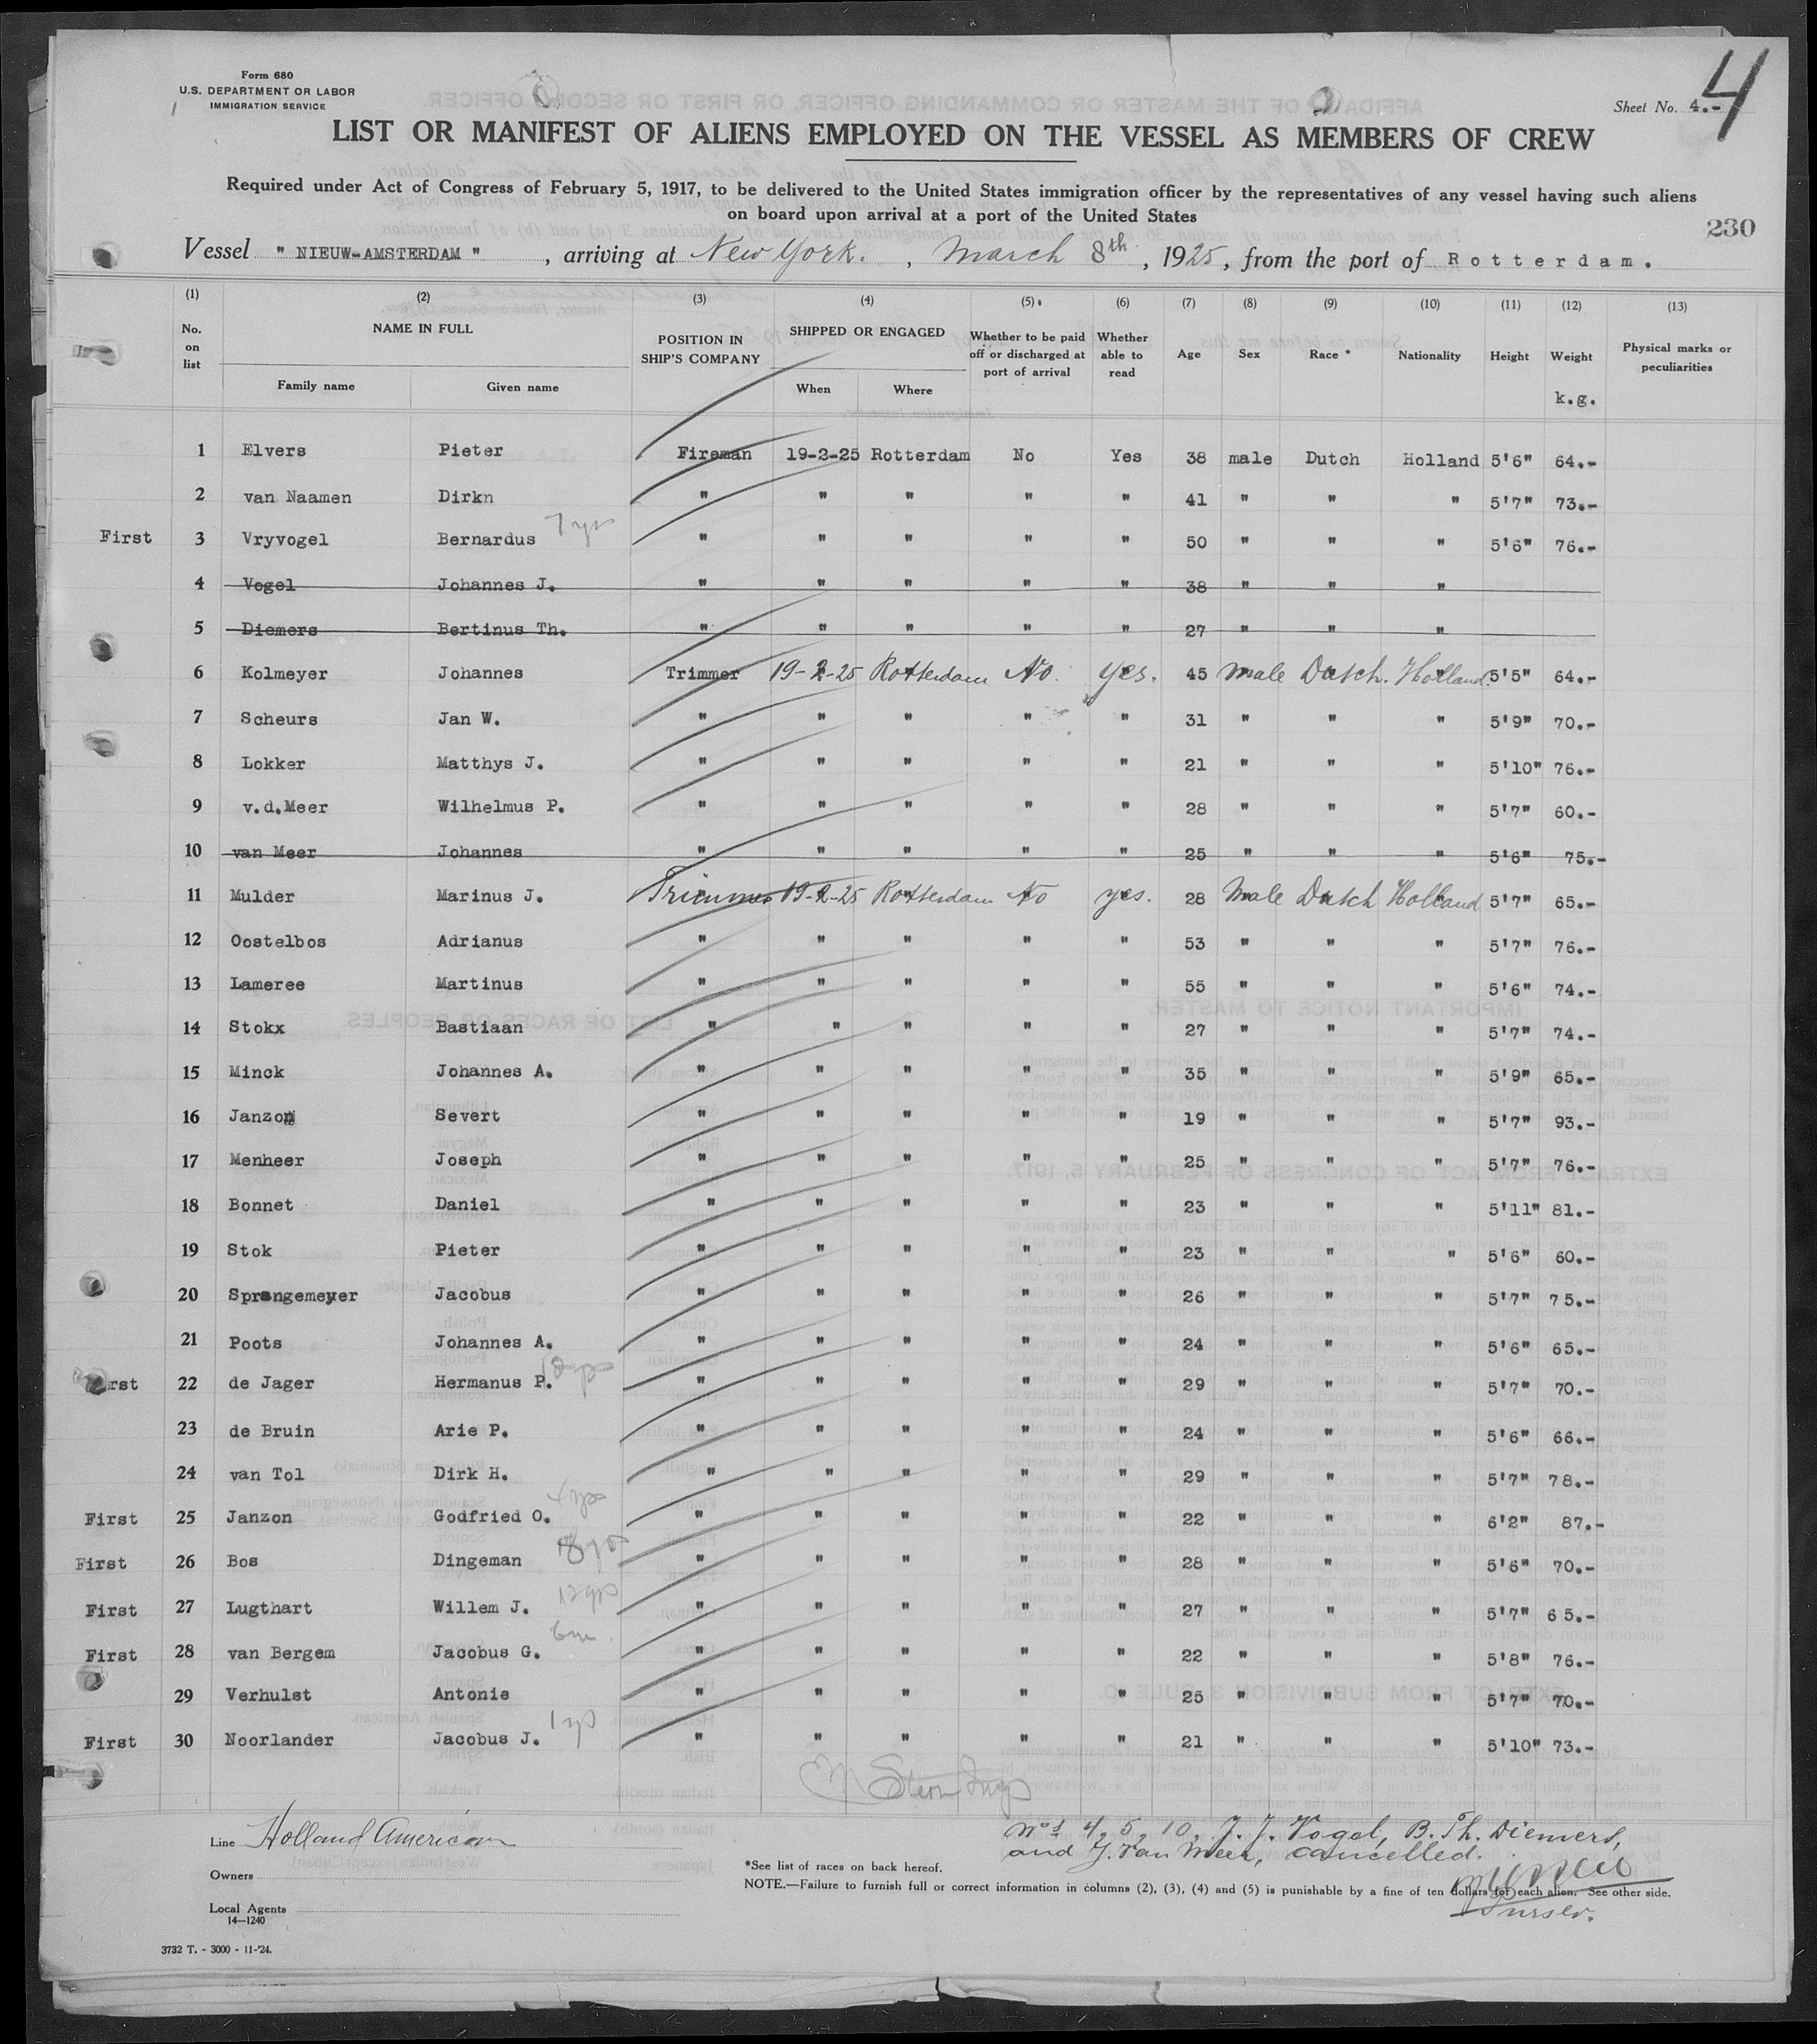 Form 680
U.S. DEPARTMENT OR LABOR
IMMIGRATION SERVICE
Sheet No. 4.-
4
LIST OR MANIFEST OF ALIENS EMPLOYED ON THE VESSEL AS MEMBERS OF CREW
Required under Act of Congress of February 5, 1917, to be delivered to the United States immigration officer by the representatives of any vessel having such aliens
on board upon arrival at a port of the United States
230
Vessel " NIEUW-AMSTERDAM " , arriving at New York. , March 8th , 1925, from the port of Rotterdam.
(1) (2) (3) (4) (5) (6) (7) (8) (9) (10) (11) (12) (13)
No. on list NAME IN FULL Family name Given name POSITION IN SHIP'S COMPANY SHIPPED OR ENGAGED When Where Whether to be paid off or discharged at port of arrival Whether able to read Age Sex Race * Nationality Height Weight k.g. Physical marks or peculiarities
1 Elvers Pieter Fireman 19-2-25 Rotterdam No Yes 38 male Dutch Holland 5'6" 64.-
2 van Naamen Dirkn " " " " " 41 " " " 5'7" 73.-
First 3 Vryvogel Bernardus 7 yrs " " " " " 50 " " " 5'6" 76.-
4 Vogel Johannes J. " " " " " 38 " " "
5 Diemers Bertinus Th. " " " " " 27 " " "
6 Kolmeyer Johannes Trimmer 19-2-25 Rotterdam No. yes. 45 male Dutch. Holland. 5'5" 64.-
7 Scheurs Jan W. " " " " " 31 " " " 5'9" 70.-
8 Lokker Matthys J. " " " " " 21 " " " 5'10" 76.-
9 v.d.Meer Wilhelmus P. " " " " " 28 " " " 5'7" 60.-
10 van Meer Johannes " " " " " 25 " " " 5'6" 75.-
11 Mulder Marinus J. Trimmer 19-2-25 Rotterdam No yes. 28 Male Dutch Holland 5'7" 65.-
12 Oostelbos Adrianus " " " " " 53 " " " 5'7" 76.-
13 Lameree Martinus " " " " " 55 " " " 5'6" 74.-
14 Stokx Bastiaan " " " " " 27 " " " 5'7" 74.-
15 Minck Johannes A. " " " " " 35 " " " 5'9" 65.-
16 Janzon Severt " " " " " 19 " " " 5'7" 93.-
17 Menheer Joseph " " " " " 25 " " " 5'7" 76.-
18 Bonnet Daniel " " " " " 23 " " " 5'11" 81.-
19 Stok Pieter " " " " " 23 " " " 5'6" 60.-
20 Sprangemeyer Jacobus " " " " " 26 " " " 5'7" 75.-
21 Poots Johannes A. " " " " " 24 " " " 5'6" 65.-
22 de Jager Hermanus P. " " " " " 29 " " " 5'7" 70.-
23 de Bruin Arie P. " " " " " 24 " " " 5'6" 66.-
24 van Tol Dirk H. " " " " " 29 " " " 5'7" 78.-
First 25 Janzon Godfried O. " " " " " 22 " " " 6'2" 87.-
First 26 Bos Dingeman " " " " " 28 " " " 5'6" 70.-
First 27 Lugthart Willem J. 12 yrs " " " " " 27 " " " 5'7" 65.-
First 28 van Bergem Jacobus G. " " " " " 22 " " " 5'8" 76.-
29 Verhulst Antonie " " " " " 25 " " " 5'7" 70.-
First 30 Noorlander Jacobus J. 1 yr " " " " " 21 " " " 5'10" 73.-
Line Holland American
Nos 4, 5, 10, J. J. Vogel, B. Th. Diemers,
and J. van Meer, cancelled.
Owners
*See list of races on back hereof.
NOTE.—Failure to furnish full or correct information in columns (2), (3), (4) and (5) is punishable by a fine of ten dollars for each alien. See other side.
Purser.
Local Agents
14—1240
3732 T. - 3000 - 11-'24.